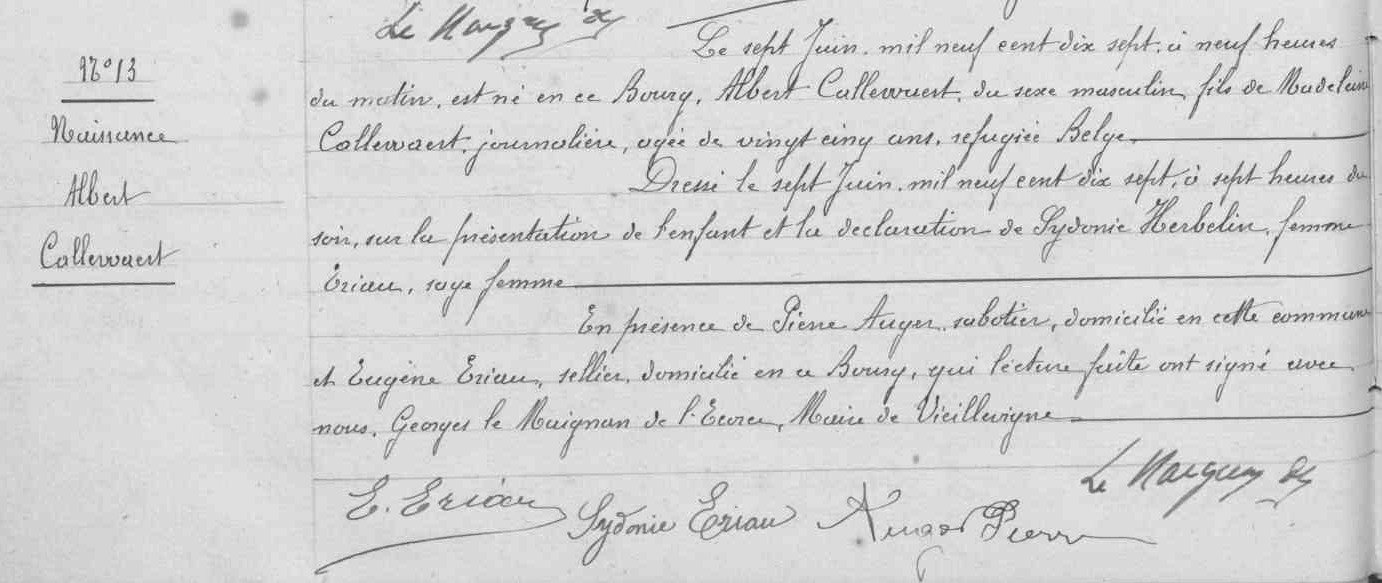 Le Maignan de
Le sept Juin, mil neuf cent dix sept, à neuf heures
N° 13
du matin, est né en ce Bourg, Albert Callewaert, du sexe masculin, fils de Madeleine
Naissance
Callewaert, journalière, agée de vingt cinq ans, refugiée Belge.
Albert
Dressé le sept Juin, mil neuf cent dix sept, à sept heures du
Callewaert
soir, sur la présentation de l'enfant et la declaration de Sydonie Herbelin, femme
Eriau, sage femme
En présence de Pierre Auger, sabotier, domicilié en cette commune
et Eugène Eriau, sellier, domicilié en ce Bourg, qui lecture faite ont signé avec
nous, Georges le Maignan de l'Ecorce, Maire de Vieillevigne
Le Maignan de
E. Eriau
Sydonie Eriau
Auger Pierre